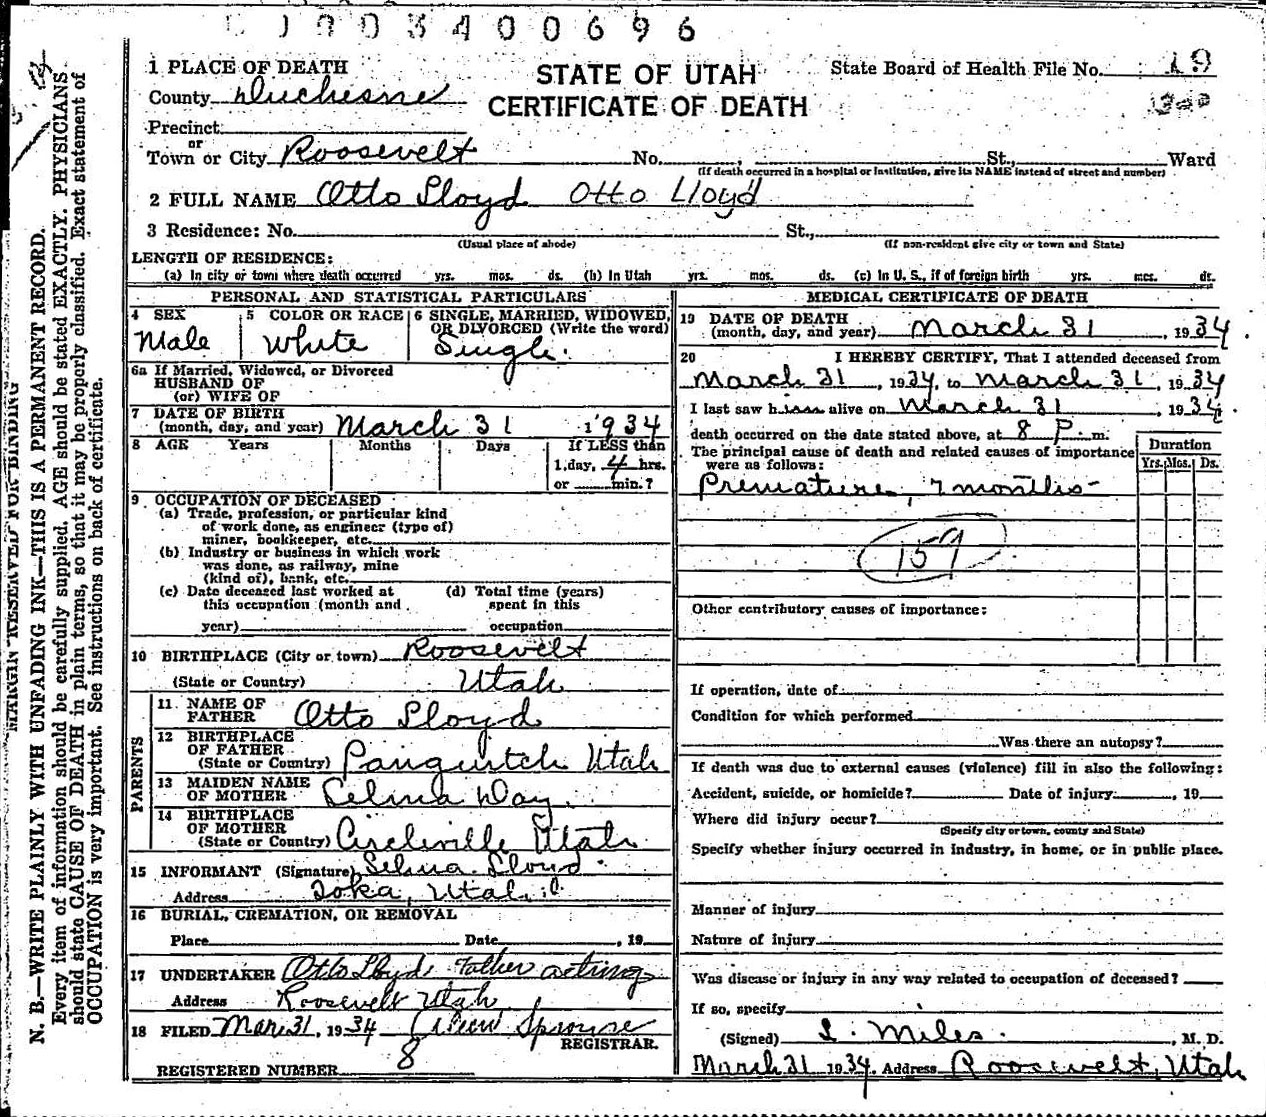 003400696
1 PLACE OF DEATH
STATE OF UTAH
CERTIFICATE OF DEATH
State Board of Health File No. 19
County Duchesne
Precinct
or
Town or City Roosevelt No. , St., Ward
(If death occurred in a hospital or institution, give its NAME instead of street and number)
2 FULL NAME Otto Lloyd Otto Lloyd
3 Residence: No. St.,
(Usual place of abode) (If non-resident give city or town and State)
LENGTH OF RESIDENCE:
(a) In city or town where death occurred yrs. mos. ds. (b) In Utah yrs. mos. ds. (c) In U. S., if of foreign birth yrs. mos. ds.
PERSONAL AND STATISTICAL PARTICULARS
4 SEX 5 COLOR OR RACE 6 SINGLE, MARRIED, WIDOWED,
OR DIVORCED (Write the word)
Male White Single.
6a If Married, Widowed, or Divorced
HUSBAND OF
(or) WIFE OF
7 DATE OF BIRTH
(month, day, and year) March 31 1934
8 AGE Years Months Days If LESS than
1 day, 4 hrs.
or min.?
9 OCCUPATION OF DECEASED
(a) Trade, profession, or particular kind
of work done, as engineer (type of)
miner, bookkeeper, etc.
(b) Industry or business in which work
was done, as railway, mine
(kind of), bank, etc.
(c) Date deceased last worked at (d) Total time (years)
this occupation (month and spent in this
year) occupation
10 BIRTHPLACE (City or town) Roosevelt
(State or Country) Utah
PARENTS
11 NAME OF
FATHER Otto Lloyd
12 BIRTHPLACE
OF FATHER
(State or Country) Panguitch Utah
13 MAIDEN NAME
OF MOTHER Selma Day.
14 BIRTHPLACE
OF MOTHER
(State or Country) Circleville Utah
15 INFORMANT (Signature) Selma Lloyd.
Address Ioka, Utah
16 BURIAL, CREMATION, OR REMOVAL
Place Date , 19
17 UNDERTAKER Otto Lloyd. Father acting
Address Roosevelt Utah
18 FILED Mar 31, 1934 Sprouse
REGISTRAR.
REGISTERED NUMBER 8
MEDICAL CERTIFICATE OF DEATH
19 DATE OF DEATH
(month, day, and year) March 31 , 1934.
20 I HEREBY CERTIFY, That I attended deceased from
March 31 , 1934, to March 31 , 1934
I last saw him alive on March 31 , 1934.
death occurred on the date stated above, at 8 P. m.
The principal cause of death and related causes of importance
were as follows:
Duration
Yrs. Mos. Ds.
Premature, 7 months
159
Other contributory causes of importance:
If operation, date of
Condition for which performed
Was there an autopsy?
If death was due to external causes (violence) fill in also the following:
Accident, suicide, or homicide? Date of injury , 19
Where did injury occur?
(Specify city or town, county and State)
Specify whether injury occurred in industry, in home, or in public place.
Manner of injury
Nature of injury
Was disease or injury in any way related to occupation of deceased?
If so, specify
(Signed) L. Miles. , M. D.
March 31 1934. Address Roosevelt, Utah
MARGIN RESERVED FOR BINDING
N. B.—WRITE PLAINLY WITH UNFADING INK—THIS IS A PERMANENT RECORD.
Every item of information should be carefully supplied. AGE should be stated EXACTLY. PHYSICIANS
should state CAUSE OF DEATH in plain terms, so that it may be properly classified. Exact statement of
OCCUPATION is very important. See instructions on back of certificate.